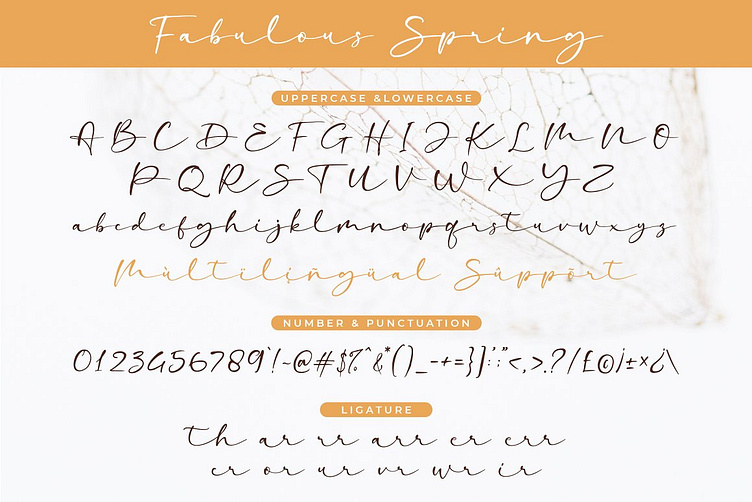 Fabulous Spring
UPPERCASE &LOWERCASE
A B C D E F G H I J K L M N O
P Q R S T U V W X Y Z
abcdefghijklmnopqrstuvwxyz
Mùltïlîñgüal Sûppört
NUMBER & PUNCTUATION
0123456789`!~@#$%^&*()_-+=}]:;'"<,>.?/£©¡±×¿\
LIGATURE
th ar rr arr er err
cr or ur vr wr ir